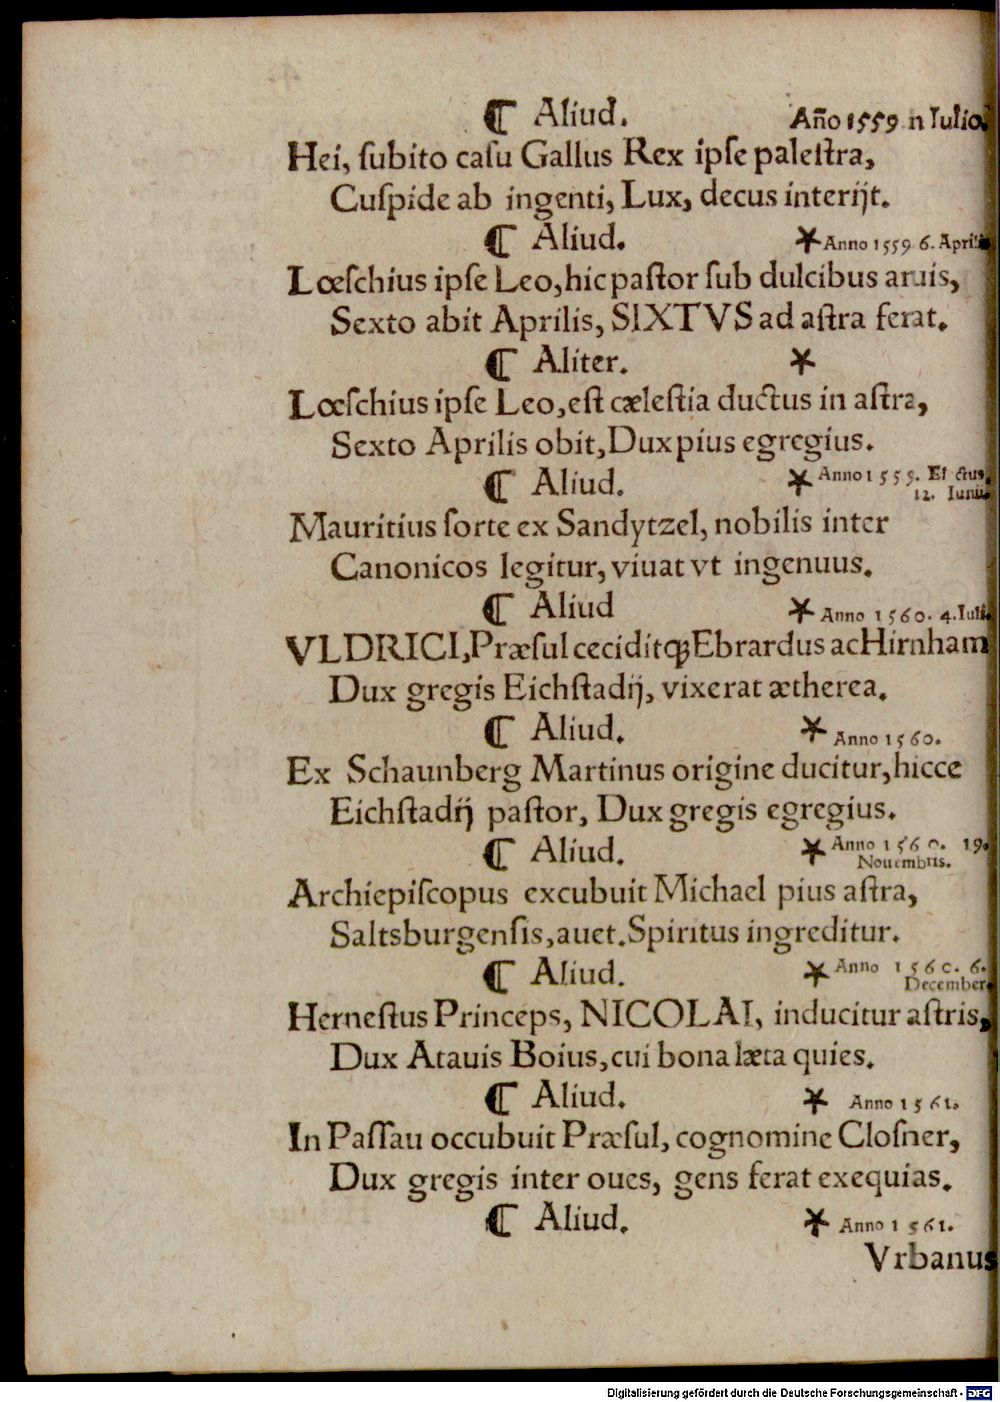 ¶ Aliud. Añо 1559 n Iulio.
Hei, ſubito caſu Gallus Rex ipſe paleſtra,
Cuſpide ab ingenti, Lux, decus interijt.
¶ Aliud. * Anno 1559 6. Aprilis
Lœſchius ipſe Leo, hic paſtor ſub dulcibus aruis,
Sexto abit Aprilis, SIXTVS ad aſtra ferat.
¶ Aliter. *
Lœſchius ipſe Leo, eſt cæleſtia ductus in aſtra,
Sexto Aprilis obit, Dux pius egregius.
¶ Aliud. * Anno 1559. El ctus.
12. Iunii.
Mauritius ſorte ex Sandytzel, nobilis inter
Canonicos legitur, viuat vt ingenuus.
¶ Aliud * Anno 1560. 4. Iuli.
VLDRICI, Præſul ceciditq́ꝫ Ebrardus ac Hirnham
Dux gregis Eichſtadij, vixerat ætherea.
¶ Aliud. * Anno 1560.
Ex Schaunberg Martinus origine ducitur, hicce
Eichſtadij paſtor, Dux gregis egregius.
¶ Aliud. * Anno 1560. 19.
Nouembris.
Archiepiſcopus excubuit Michael pius aſtra,
Saltsburgenſis, auet. Spiritus ingreditur.
¶ Aliud. * Anno 1560. 6.
December.
Herneſtus Princeps, NICOLAI, inducitur aſtris,
Dux Atauis Boius, cui bona læta quies.
¶ Aliud. * Anno 1561.
In Paſſau occubuit Præſul, cognomine Cloſner,
Dux gregis inter oues, gens ferat exequias.
¶ Aliud. * Anno 1561.
Vrbanus
Digitalisierung gefördert durch die Deutsche Forschungsgemeinschaft - DFG